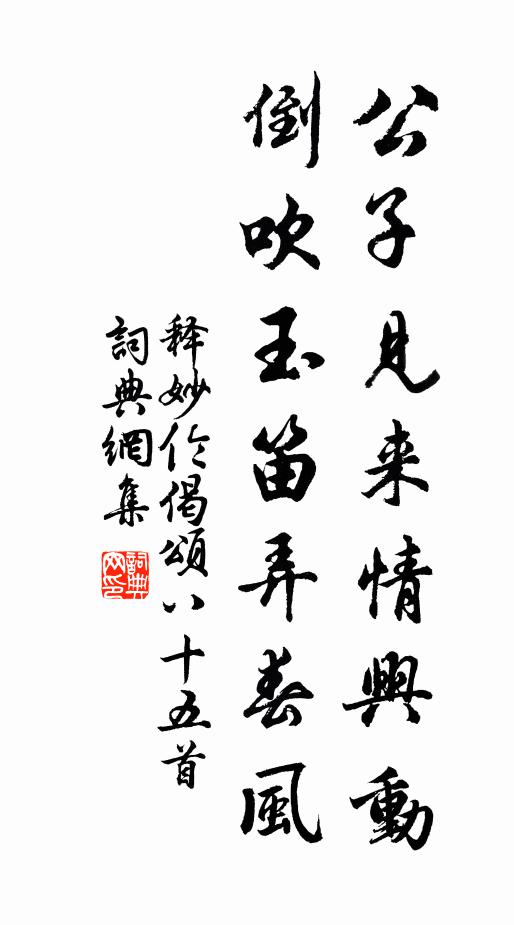 公子見来情興動
倒吹玉笛弄春風
释妙伦偈頌八十五首
詞典網集
詞典网印